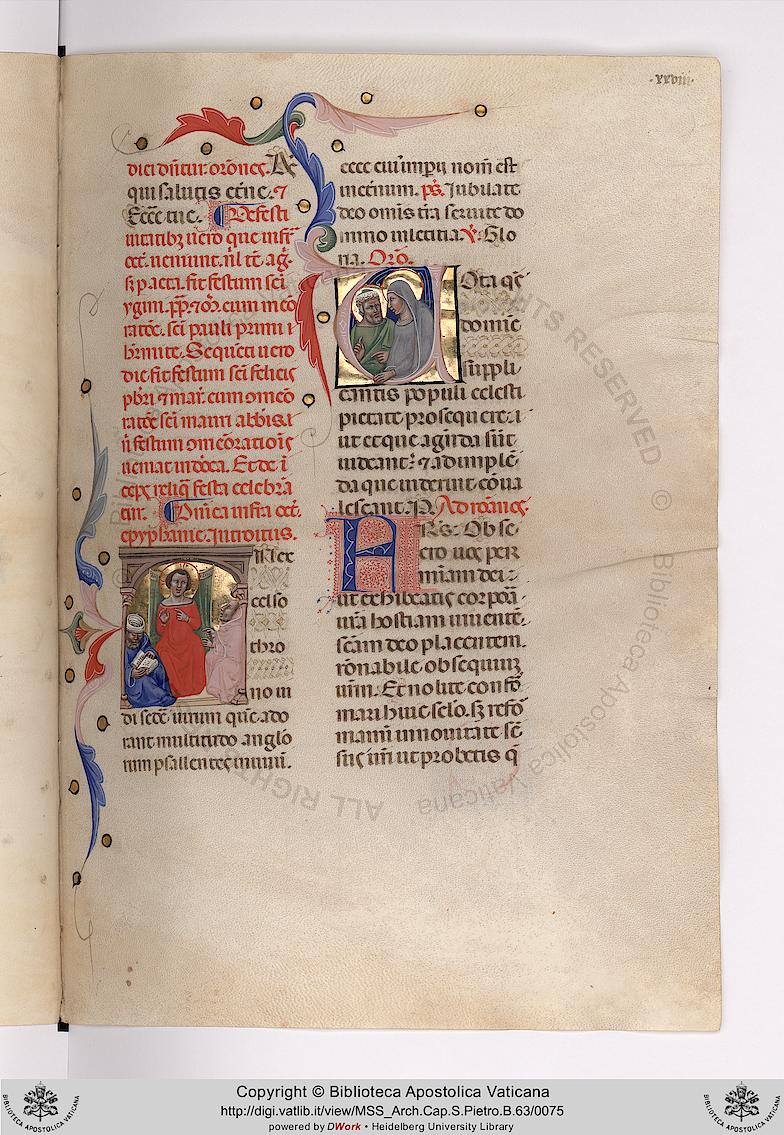 ·xxviii·
dici dn̄tur. orōnes. A
qui salutis etn̄e. ⁊
Ecce tue. De festi
uitatibz uero que infr̄
oct̄. ueniunt. nl̄ tē aḡr̄
sꝫ pacta. fit festum sc̄i
ygini. pp̄. ⁊ m̄r̄. cum meō
ratōe. sc̄i pauli primi i
hr̄mite. Sequēti uero
die fit festum sc̄i felicis
pbr̄i ⁊ mar̄. cum ōmeō
ratōe sc̄i mauri abbis. i
festum ōmeōrationis
ueniat in dn̄ica. Et de i
ceps reliq̄ festa celebrā
tur. Dn̄ica infra oct̄.
epyphanie. Introitus.
IN ex
celso
thro
no ui
di sedē. uirum quē ado
rant multitudo anglo
rum psallentes in unū.
ecce cui' imperii nom̄ est
in et̄num. ps̄. Iubilate
deo om̄is tr̄a seruite do
mino in letitia. V̄. Glo
ria. Orō.
Vota qs̄
domie
suppli
cantis populi celesti
pietate prosequere. i
ut et que agenda sūt
uideant: ⁊ ad implē
da que uiderint cōua
lescant. P. Ad romanos.
FRs̄. Obse
cro uos per
mīam dei:
ut exhibeatis corpora
ur̄a hostiam uiuentē.
sc̄am deo placentem.
rōnabile. obsequium
ur̄m. Et nolite confor
mari huic sclo. sꝫ refor
mamī in nouitate sē
sus ur̄i ut probetis q̄
Copyright © Biblioteca Apostolica Vaticana
http://digi.vatlib.it/view/MSS_Arch.Cap.S.Pietro.B.63/0075
powered by DWork • Heidelberg University Library
BIBLIOTECA APOSTOLICA VATICANA
BIBLIOTECA APOSTOLICA VATICANA
ALL RIGHTS RESERVED © Biblioteca Apostolica Vaticana